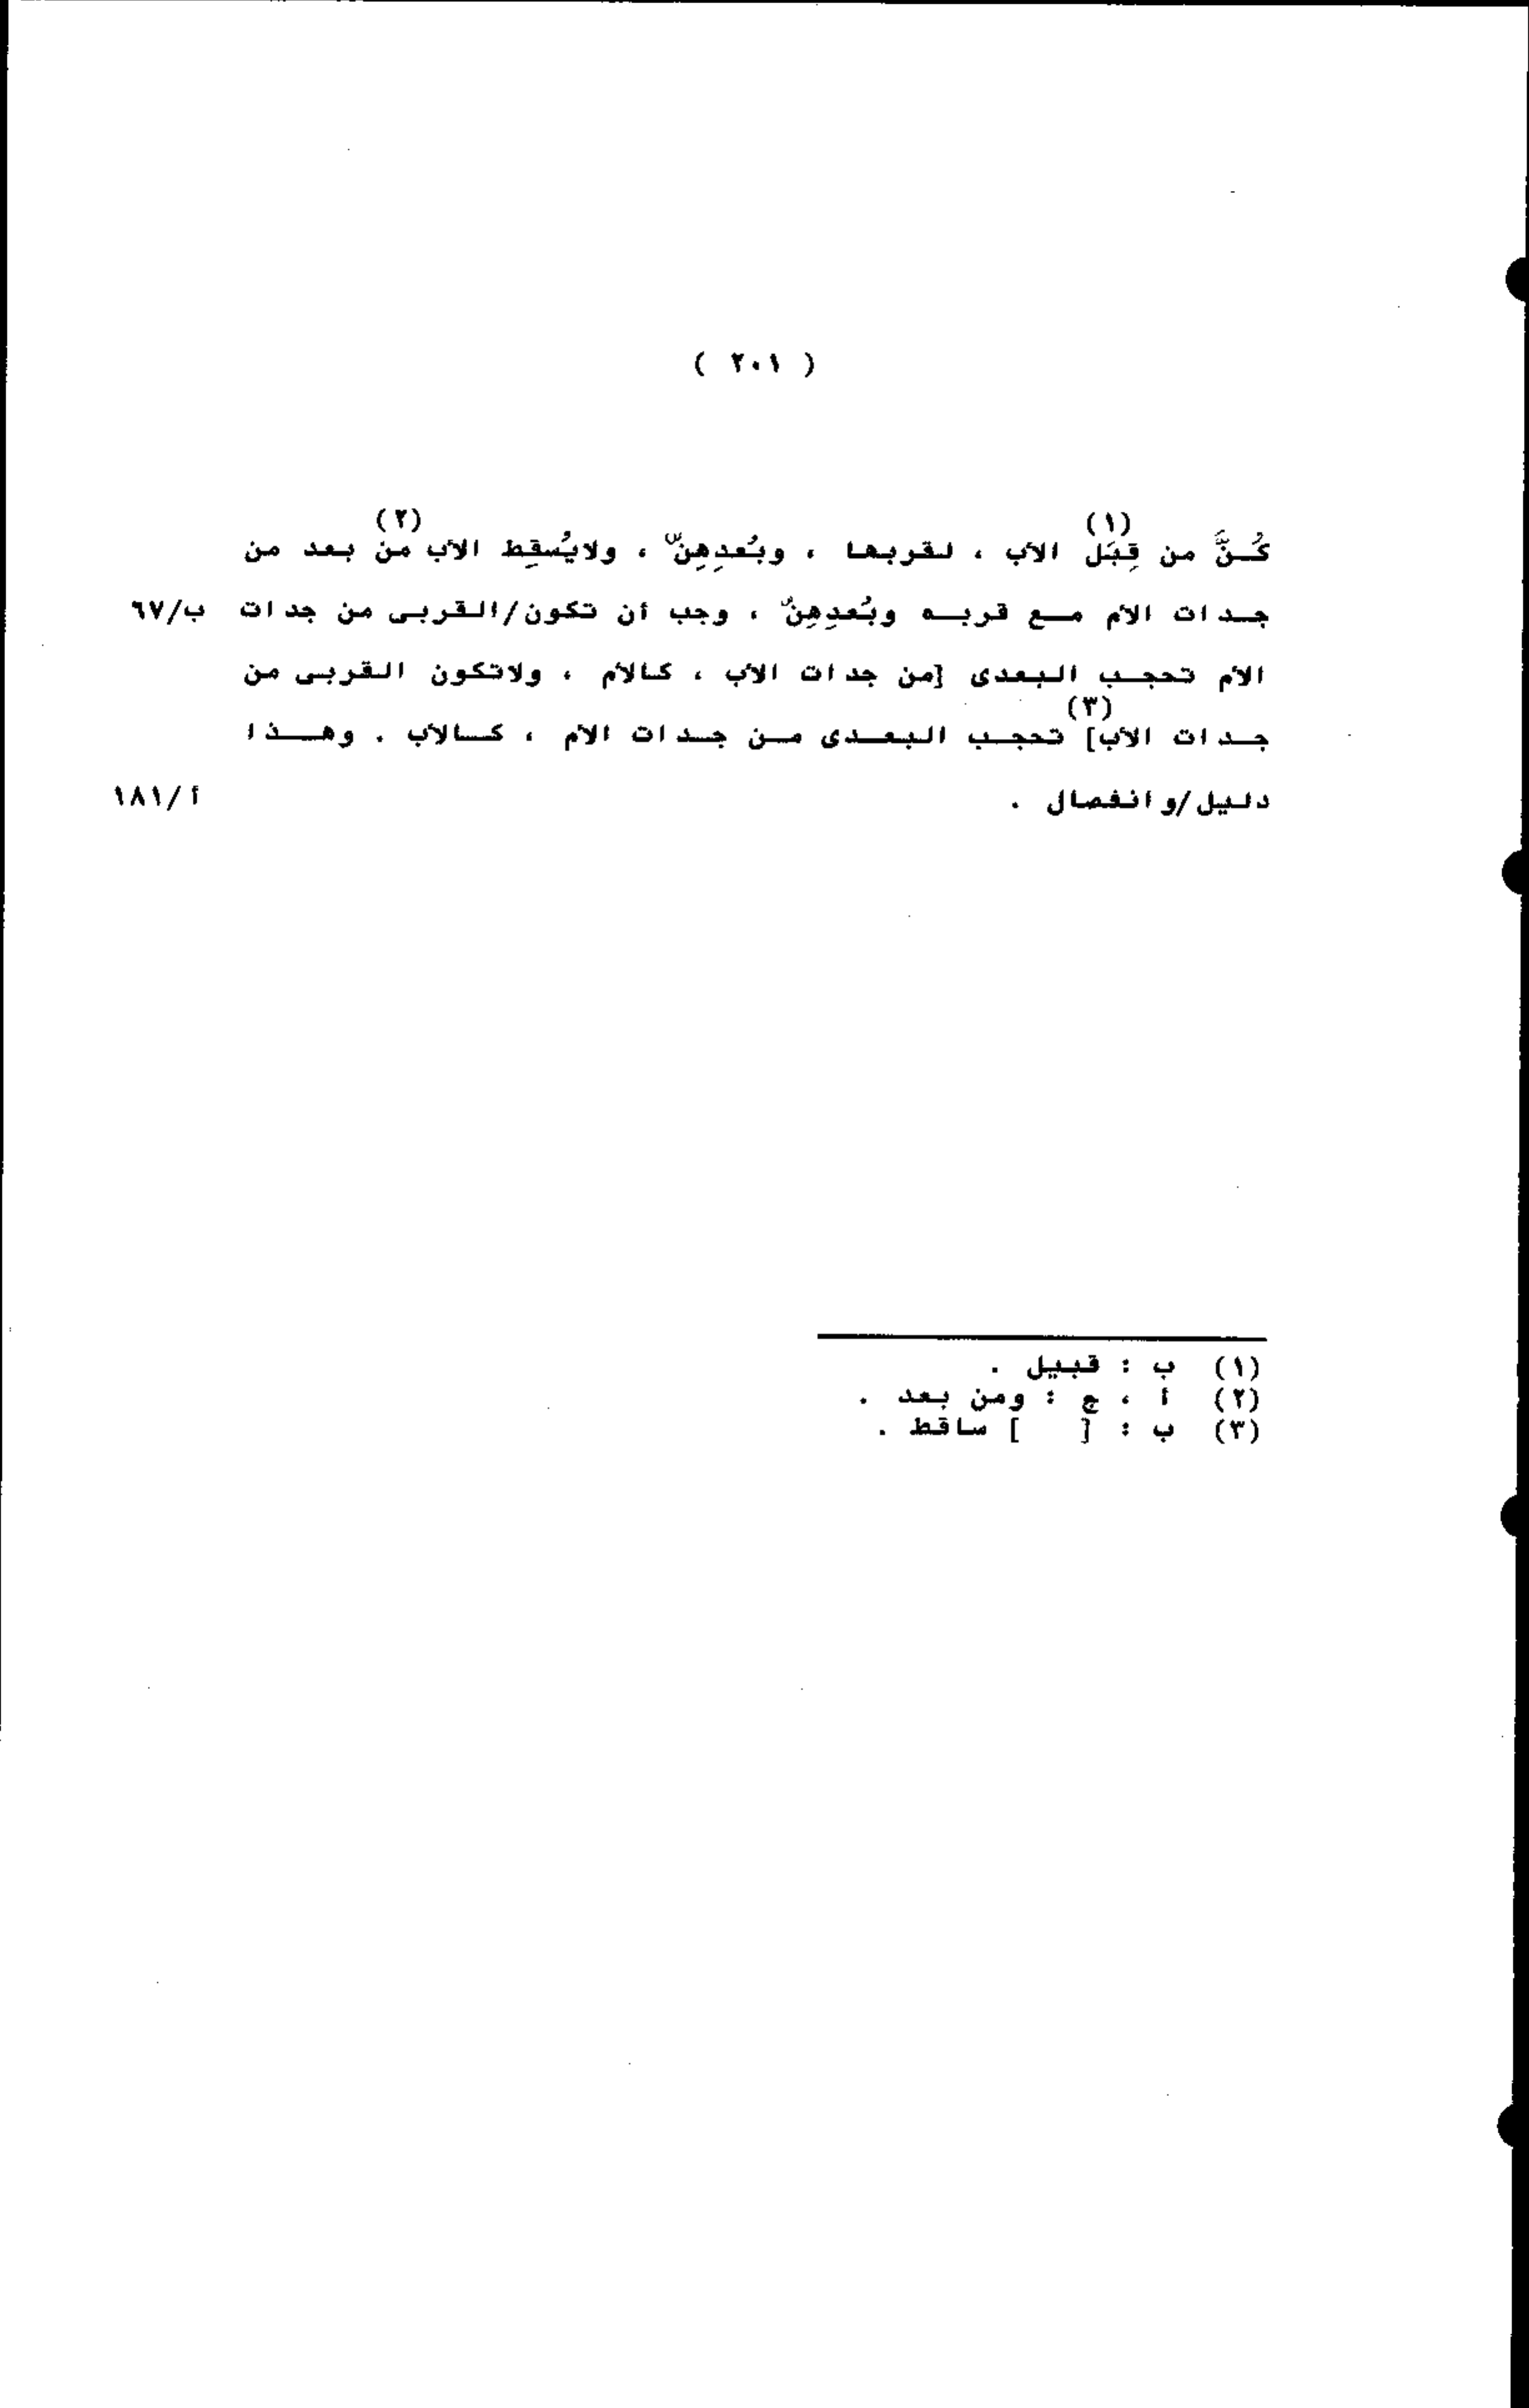 ( ٢٠١ )
كُنَّ من قِبَل (١) الأب ، لقربها ، وبُعدِهِنّ ، ولايُسقِط الأب من (٢) بعد من
جدات الأم مع قربه وبُعدِهِنّ ، وجب أن تكون/القربى من جدات ب/٦٧
الأم تحجب البعدى [من جدات الأب ، كالأم ، ولاتكون القربى من
جدات الأب] (٣) تحجب البعدى من جدات الأم ، كالأب . وهذا
دليل/وانفصال . أ/١٨١
(١) ب : قبيل .
(٢) أ ، ج : ومن بعد .
(٣) ب : [ ] ساقط .